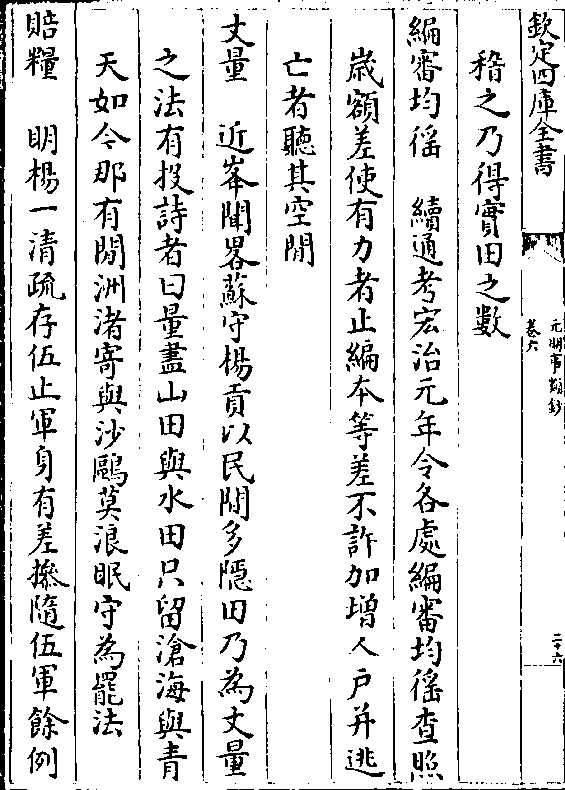 欽定四庫全書
元明事類鈔
卷六
二十六
稽之乃得實田之數
編審均徭　續通考宏治元年令各處編審均徭查照
歲額差使有力者止編本等差不許加增人户并逃
亡者聽其空閒
丈量　近峯聞畧蘇守楊貢以民間多隱田乃為丈量
之法有投詩者曰量盡山田與水田只留滄海與青
天如今那有閒洲渚寄與沙鷗莫浪眠守為罷法
賠糧　明楊一清疏存伍止軍身有差撡隨伍軍餘例